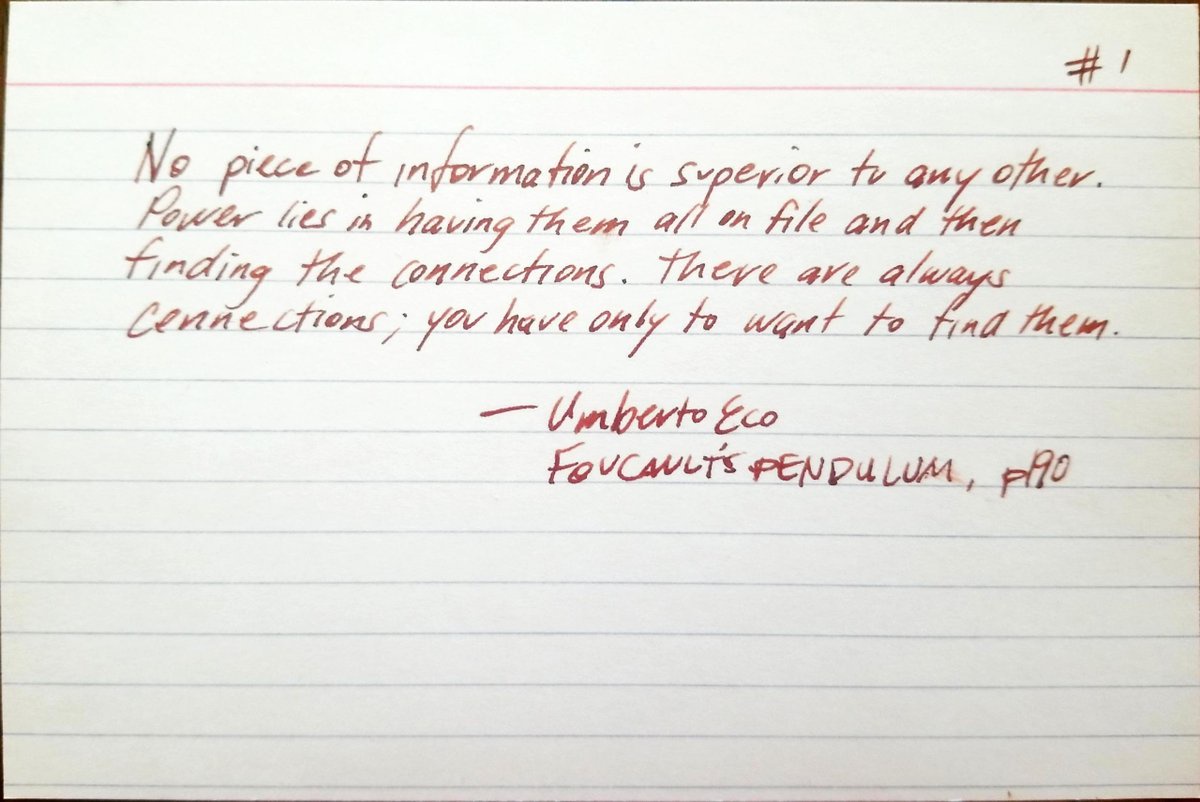 #1
No piece of information is superior to any other.
Power lies in having them all on file and then
finding the connections. There are always
connections; you have only to want to find them.
— Umberto Eco
FOUCAULT'S PENDULUM, p190